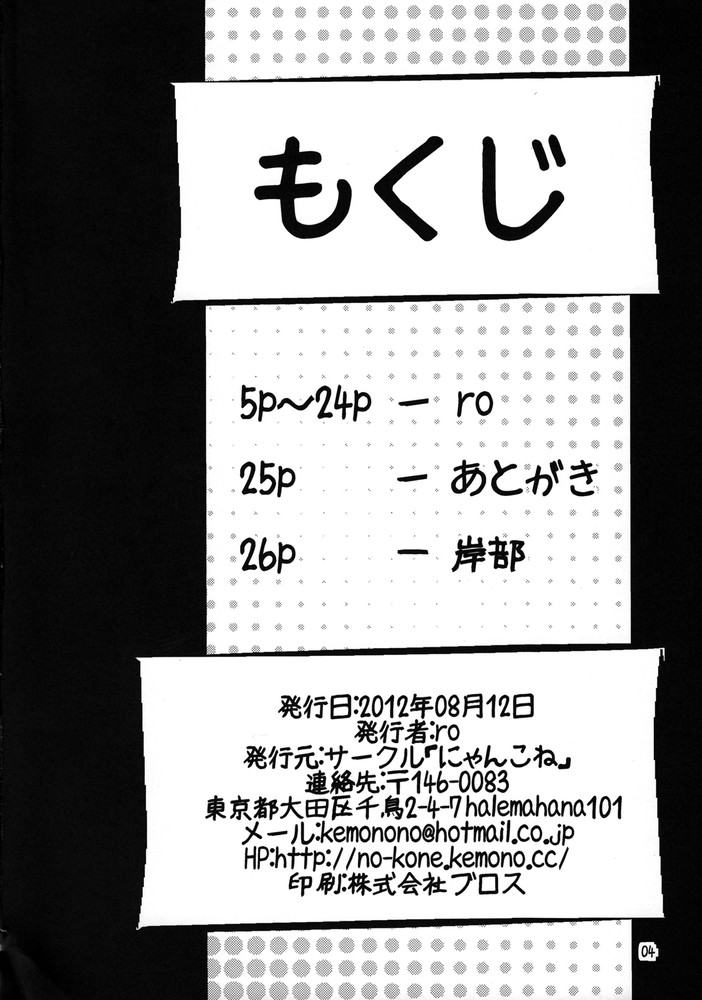 もくじ
5p～24p ー ro
25p ー あとがき
26p ー 岸部
発行日:2012年08月12日
発行者:ro
発行元:サークル『にゃんこね』
連絡先:〒146-0083
東京都大田区千鳥2-4-7halemahana101
メール:kemonono@hotmail.co.jp
HP:http://no-kone.kemono.cc/
印刷:株式会社ブロス
04